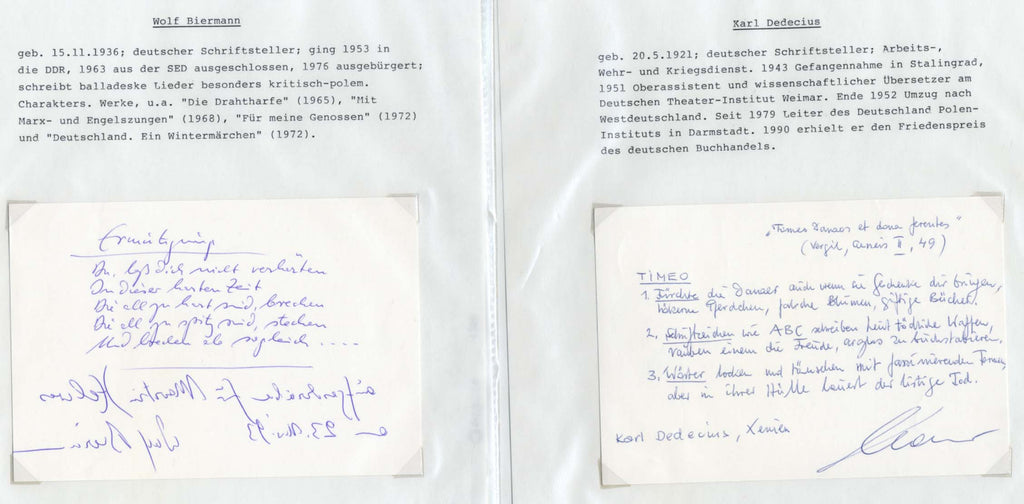 Wolf Biermann
geb. 15.11.1936; deutscher Schriftsteller; ging 1953 in
die DDR, 1963 aus der SED ausgeschlossen, 1976 ausgebürgert;
schreibt balladeske Lieder besonders kritisch-polem.
Charakters. Werke, u.a. "Die Drahtharfe" (1965), "Mit
Marx- und Engelszungen" (1968), "Für meine Genossen" (1972)
und "Deutschland. Ein Wintermärchen" (1972).
Ermutigung
Du, laß dich nicht verhärten
In dieser harten Zeit
Die all zu hart sind, brechen
Die all zu spitz sind, stechen
Und brechen ab sogleich ....
aufgeschrieben für Martin
23.
Wolf
Karl Dedecius
geb. 20.5.1921; deutscher Schriftsteller; Arbeits-,
Wehr- und Kriegsdienst. 1943 Gefangennahme in Stalingrad,
1951 Oberassistent und wissenschaftlicher Übersetzer am
Deutschen Theater-Institut Weimar. Ende 1952 Umzug nach
Westdeutschland. Seit 1979 Leiter des Deutschland Polen-
Instituts in Darmstadt. 1990 erhielt er den Friedenspreis
des deutschen Buchhandels.
„Timeo Danaos et dona ferentes"
(Vergil, Aeneis II, 49)
TIMEO
1. Fürchte die Danaer auch wenn sie Geschenke dir bringen,
hölzerne Pferdchen, falsche Blumen, giftige Bücher.
2. Schriftzeichen wie ABC schreiben heißt tödliche Waffen,
rauben einem die Freude, arglos zu buchstabieren.
3. Wörter locken und täuschen mit faszinierenden Formen,
aber in ihrer Hülle lauert der listige Tod.
Karl Dedecius, Xenien